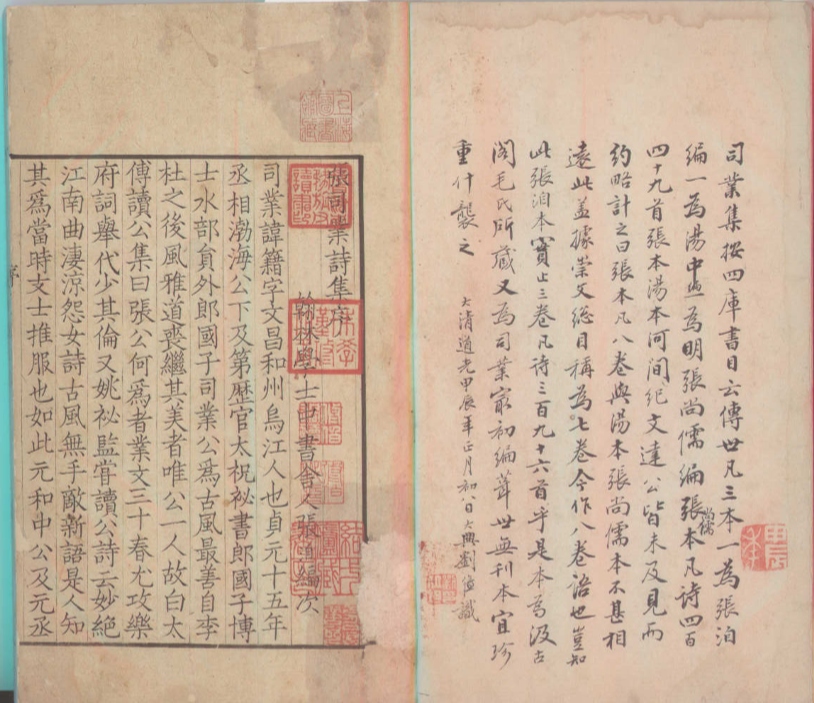 司業集按四庫書目云傳世凡三本一為張洎
編一為湯中一為明張尚儒編張尚儒本凡詩四百
四十九首張本湯本河間紀文達公皆未及見而
約略計之曰張本凡八卷與湯本張尚儒本不甚相
遠此蓋據崇文總目稱為七卷今作八卷語也豈知
此張洎本實止三卷凡詩三百九十六首乎是本為汲古
閣毛氏所藏又為司業最初編葺世無刊本宜珍
重什襲之 大清道光甲辰年正月初八日大興劉位識
張司業詩集序
翰林學士中書舍人張洎編次
司業諱籍字文昌和州烏江人也貞元十五年
丞相渤海公下及第歷官太祝祕書郎國子博
士水部貟外郎國子司業公爲古風最善自李
杜之後風雅道喪繼其美者唯公一人故白太
傅讀公集曰張公何爲者業文三十春尤攻樂
府詞舉代少其倫又姚祕監甞讀公詩云妙絕
江南曲凄涼怨女詩古風無手敵新語是人知
其爲當時文士推服也如此元和中公及元丞
序